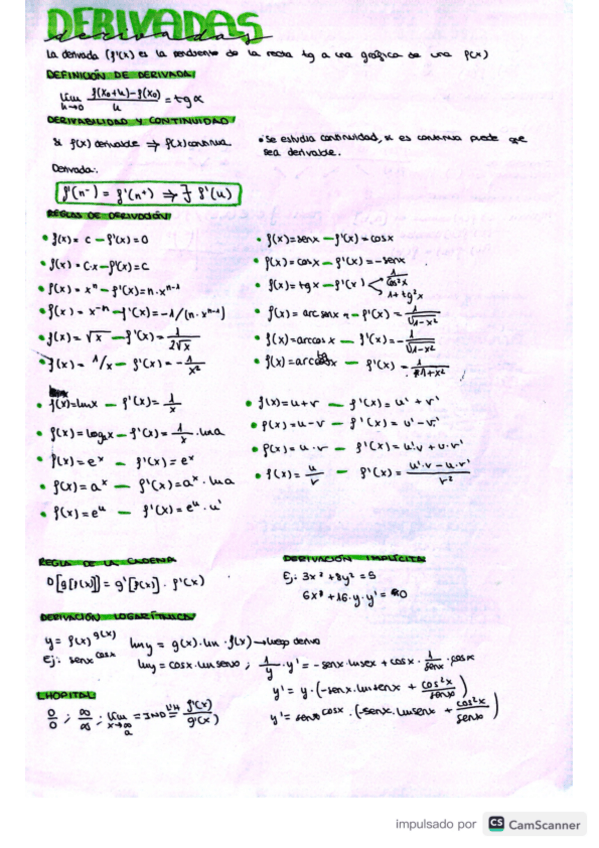 DERIVADAS
derivadas
La derivada (f'(x) es la pendiente de la recta tg a una gráfica de una f(x)
DEFINICIÓN DE DERIVADA/
lím h→0 f(x₀+h)-f(x₀) / h = tg α
DERIVABILIDAD Y CONTINUIDAD/
Si f(x) derivable ⇒ f(x) continua.
• Se estudia continuidad, si es continua puede que
sea derivable.
Derivada:
f'(n⁻) = f'(n⁺) ⇒ ∃ f'(n)
REGLAS DE DERIVACIÓN/
• f(x) = c — f'(x) = 0
• f(x) = c·x — f'(x) = c
• f(x) = xⁿ — f'(x) = n·xⁿ⁻¹
• f(x) = x⁻ⁿ — f'(x) = -1/(n·xⁿ⁻¹)
• f(x) = √x — f'(x) = 1/2√x
• f(x) = 1/x — f'(x) = -1/x²
• f(x) = senx — f'(x) + cosx
• f(x) = cosx — f'(x) = -senx
• f(x) = tgx — f'(x) < 1/cos²x
1+tg²x
• f(x) = arc senx — f'(x) = 1/√1-x²
• f(x) = arccos x — f'(x) = -1/√1-x²
• f(x) = arctg x — f'(x) = 1/1+x²
• f(x) = lnx — f'(x) = 1/x
• f(x) = logₐx — f'(x) = 1/x · lna
• f(x) = eˣ — f'(x) = eˣ
• f(x) = aˣ — f'(x) = aˣ · lna
• f(x) = eᵘ — f'(x) = eᵘ · u'
• f(x) = u+v — f'(x) = u' + v'
• f(x) = u-v — f'(x) = u' - v'
• f(x) = u·v — f'(x) = u'·v + u·v'
• f(x) = u/v — f'(x) = u'·v - u·v' / v²
REGLA DE LA CADENA
D[g[f(x)]] = g'[f(x)] · f'(x)
DERIVACIÓN IMPLÍCITA
Ej: 3x² + 8y² = 5
6x + 16·y·y' = 0
DERIVACIÓN LOGARÍTMICA/
y = f(x)^g(x) lny = g(x)·ln·f(x) → luego derivo
Ej: senx^cosx lny = cosx·lnsenx ; 1/y · y' = -senx·lnsex + cosx · 1/senx · cosx
y' = y·(-senx·lnsenx + cos²x/senx)
y' = senx^cosx · (-senx·lnsenx + cos²x/senx)
L'HOPITAL
0/0 ; ∞/∞ ; lím x→∞ a = IND L'H = f'(x)/g'(x)
impulsado por CS CamScanner